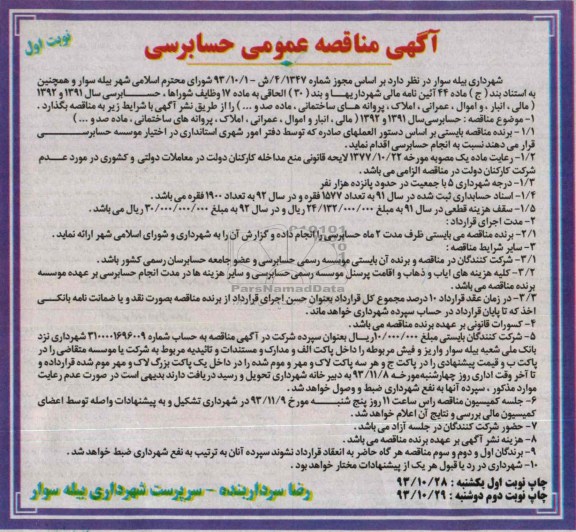 نوبت اول
آگهی مناقصه عمومی حسابرسی
شهرداری بیله سوار در نظر دارد بر اساس مجوز شماره ۴/۱۳۴۷/ش - ۹۳/۱۰/۱ شورای محترم اسلامی شهر بیله سوار و همچنین
به استناد بند ( ج ) ماده ۴۴ آئین نامه مالی شهرداریها و بند ( ۳۰ ) الحاقی به ماده ۱۷ وظایف شوراها ، حسابرسی سال ۱۳۹۱ و ۱۳۹۲
( مالی ، انبار ، و اموال ، عمرانی ، املاک ، پروانه های ساختمانی ، ماده صد و ... ) را از طریق نشر آگهی با شرایط زیر به مناقصه بگذارد .
۱- موضوع مناقصه : حسابرسی‌سال ۱۳۹۱ و ۱۳۹۲ ( مالی ، انبار و اموال ، عمرانی ، املاک ، پروانه های ساختمانی ، ماده صدو ... )
۱/۱- برنده مناقصه بایستی بر اساس دستور العملهای صادره که توسط دفتر امور شهری استانداری در اختیار موسسه حسابرسی
قرار می دهند نسبت به انجام حسابرسی اقدام نماید .
۱/۲- رعایت ماده یک مصوبه مورخه ۱۳۷۷/۱۰/۲۲ لایحه قانونی منع مداخله کارکنان دولت در معاملات دولتی و کشوری در مورد عدم
شرکت کارکنان دولت در مناقصه الزامی می باشد .
۱/۳- درجه شهرداری ۵ با جمعیت در حدود پانزده هزار نفر
۱/۴- اسناد حسابداری ثبت شده در سال ۹۱ به تعداد ۱۵۷۷ فقره و در سال ۹۲ به تعداد ۱۹۰۰ فقره می باشد .
۱/۵- سقف هزینه قطعی در سال ۹۱ به مبلغ ۲۴/۱۳۲/۰۰۰/۰۰۰ ریال و در سال ۹۲ به مبلغ ۳۰/۰۰۰/۰۰۰/۰۰۰ ریال می باشد .
۲- مدت اجرای قرارداد :
۲/۱- برنده مناقصه می بایستی ظرف مدت ۲ ماه حسابرسی را انجام داده و گزارش آن را به شهرداری و شورای اسلامی شهر ارائه نماید .
۳- سایر شرایط مناقصه :
۳/۱- شرکت کنندگان در مناقصه و برنده آن بایستی موسسه رسمی حسابرسی و عضو جامعه حسابرسان رسمی کشور باشد .
۳/۲- کلیه هزینه های ایاب و ذهاب و اقامت پرسنل موسسه رسمی حسابرسی و سایر هزینه ها در مدت انجام حسابرسی بر عهده موسسه
برنده مناقصه می باشد .
۳/۳- در زمان عقد قرارداد ۱۰ درصد مجموع کل قرارداد بعنوان حسن اجرای قرارداد از برنده مناقصه بصورت نقد و یا ضمانت نامه بانکی
اخذ که تا پایان قرارداد در حساب سپرده شهرداری خواهد ماند .
۴- کسورات قانونی بر عهده برنده مناقصه می باشد .
۵- شرکت کنندگان بایستی مبلغ ۱۰/۰۰۰/۰۰۰ریال بعنوان سپرده شرکت در آگهی مناقصه به حساب شماره ۳۱۰۰۰۰۱۶۹۶۰۰۹ شهرداری نزد
بانک ملی شعبه بیله سوار واریز و فیش مربوطه را داخل پاکت الف و مدارک و مستندات و تائیدیه مربوط به شرکت یا موسسه متقاضی را در
پاکت ب و قیمت پیشنهادی را در پاکت ج و هر سه پاکت لاک و مهر و موم شده را در داخل یک پاکت بزرگ لاک و مهر موم شده قرارداده و
تا آخر وقت اداری روز چهارشنبه مورخه ۹۳/۱۱/۸ به دبیر خانه شهرداری تحویل و رسید دریافت دارند بدیهی است در صورت عدم رعایت
موارد مذکور ، سپرده آنها به نفع شهرداری ضبط و وصول خواهد شد.
۶- جلسه کمیسیون مناقصه راس ساعت ۱۱ روز پنج شنبه مورخ ۹۳/۱۱/۹ در شهرداری تشکیل و به پیشنهادات واصله توسط اعضای
کمیسیون مالی بررسی و نتایج آن اعلام خواهد شد .
۷- حضور شرکت کنندگان در جلسه آزاد می باشد .
۸- هزینه نشر آگهی بر عهده برنده مناقصه می باشد .
۹- برندگان اول و دوم و سوم مناقصه هر گاه حاضر به انعقاد قرارداد نشوند سپرده آنان به ترتیب به نفع شهرداری ضبط خواهد شد .
۱۰- شهرداری در رد یا قبول هر یک از پیشنهادات مختار خواهد بود .
چاپ نوبت اول یکشنبه : ۹۳/۱۰/۲۸
چاپ نوبت دوم دوشنبه : ۹۳/۱۰/۲۹
رضا سردارینده - سرپرست شهرداری بیله سوار
ParsNamadData